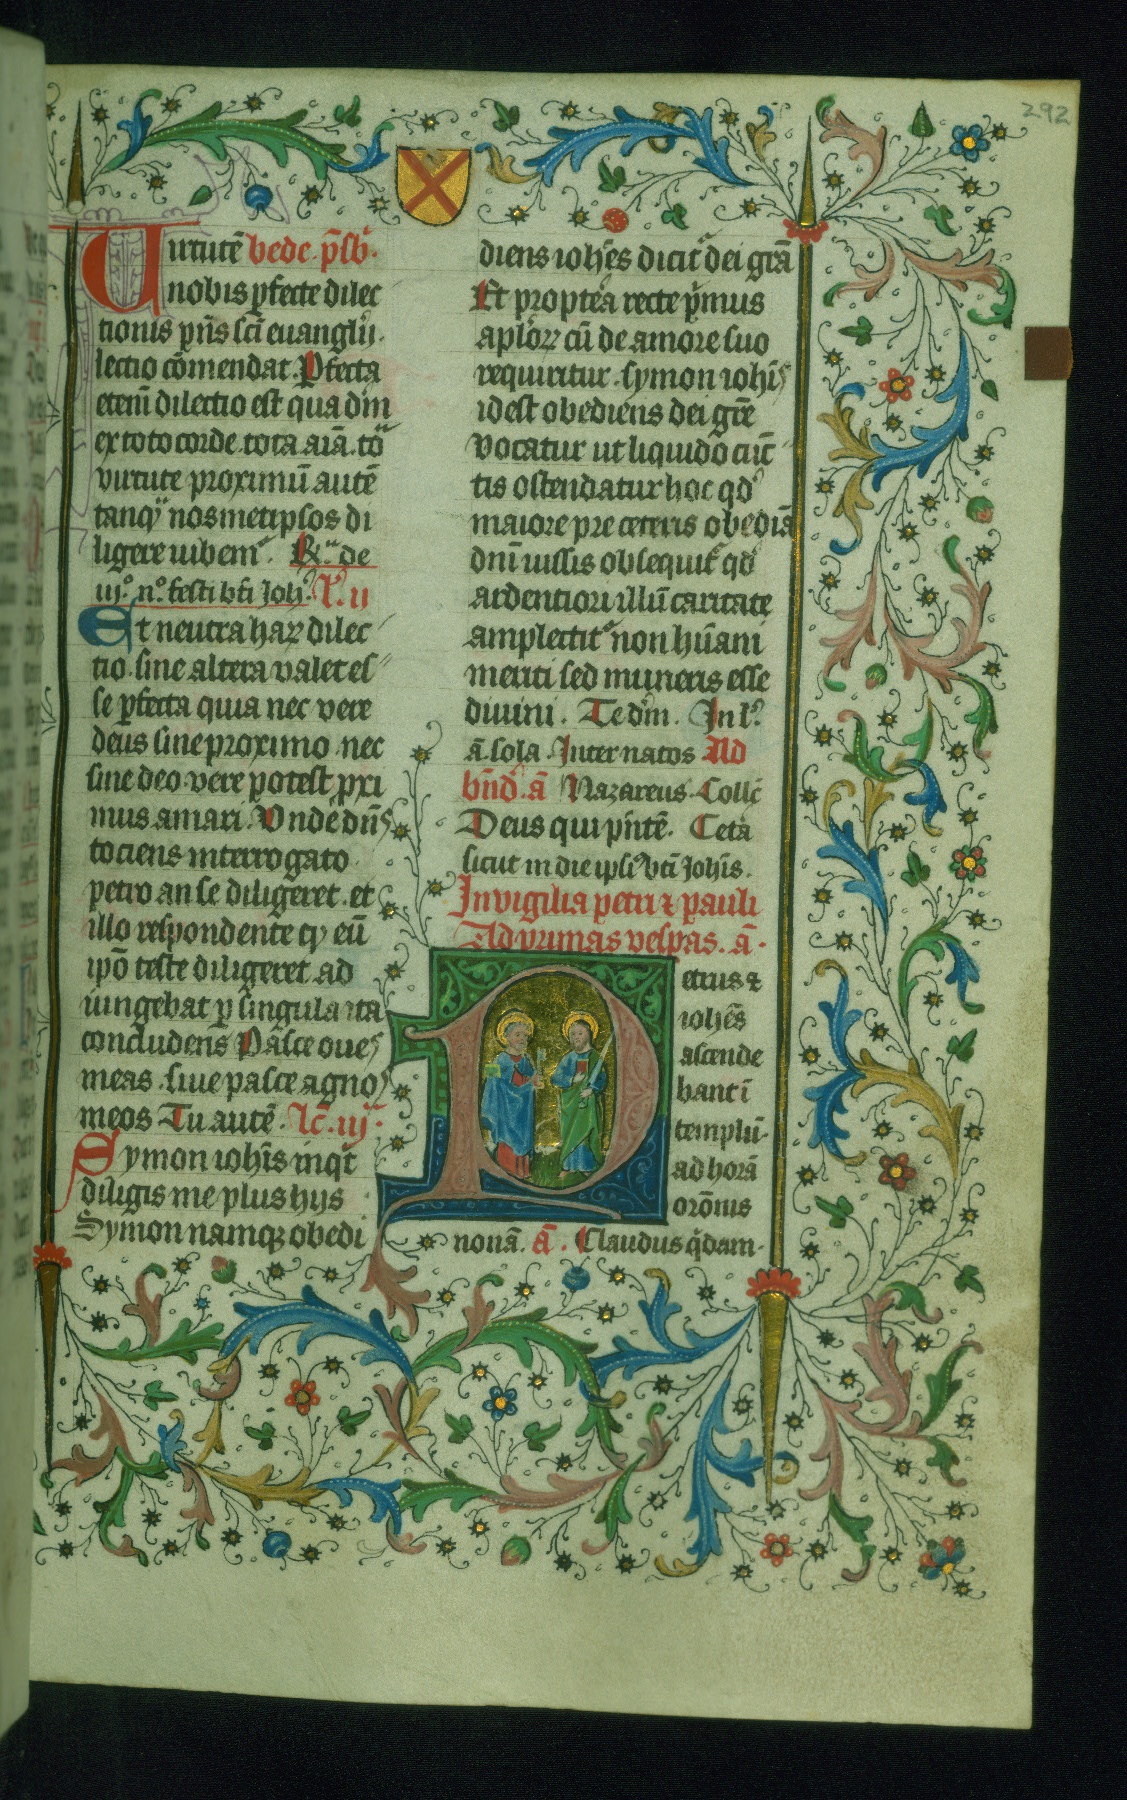 292
Virtutē bede. p̄sb̄.
nobis ꝑfecte dilec
tionis p̄ns sc̄i euanglij.
lectio cōmendat. Perfecta
etenī dilectio est qua dm̄
ex toto corde. tota aīa. tō
virtute proximū autē
tanqͣ nosmetipsos di
ligere iubemˀ. de
iij.º n.º festi bt̄i Joh̄. L̄. ij
Et neutra haꝝ dilec
tio. sine altera valet es
se ꝑfecta quia nec vere
deus sine proximo nec
sine deo vere potest pxi
mus amari. Vnde dn̄s
tociens interrogato
petro an se diligeret. et
illo respondente qꝫ eū
ip̄o teste diligeret. ad
iungebat ꝑ singula ita
concludens Pasce oues
meas. siue pasce agnos
meos Tu autē. Lc̄. iij.
Symon ioh̄is inqͥt
diligis me plus hijs
Symon namqꝫ obedi
diens ioh̄es dicitˀ dei grā
Et propterͣea recte pͥmus
apl̄oꝝ cū de amore suo
requiritur. symon ioh̄is
id est obediens dei grē
vocatur ut liquido cūc
tis ostendatur hoc qd̓
maiore pre ceteris obediā
dn̄i iussis obsequitˀ qd̓
ardentiori illū caritate
amplectitˀ non hūani
meriti sed muneris esse
diuini. Te dm̄. In l.
ā. sola. Inter natos Ad
bn̄d̓. ā Nazareus. Collc̄
Deus qui pn̄tē. Cetā
sicut in die ipsiˀ bt̄i Joh̄is.
In vigilia petri ⁊ pauli
Ad primas vesp̄as. ā.
Petrus ⁊
ioh̄es
ascende
bant ī
templū.
ad horā
orōnis
nonā. ā. Claudus qͥdam.